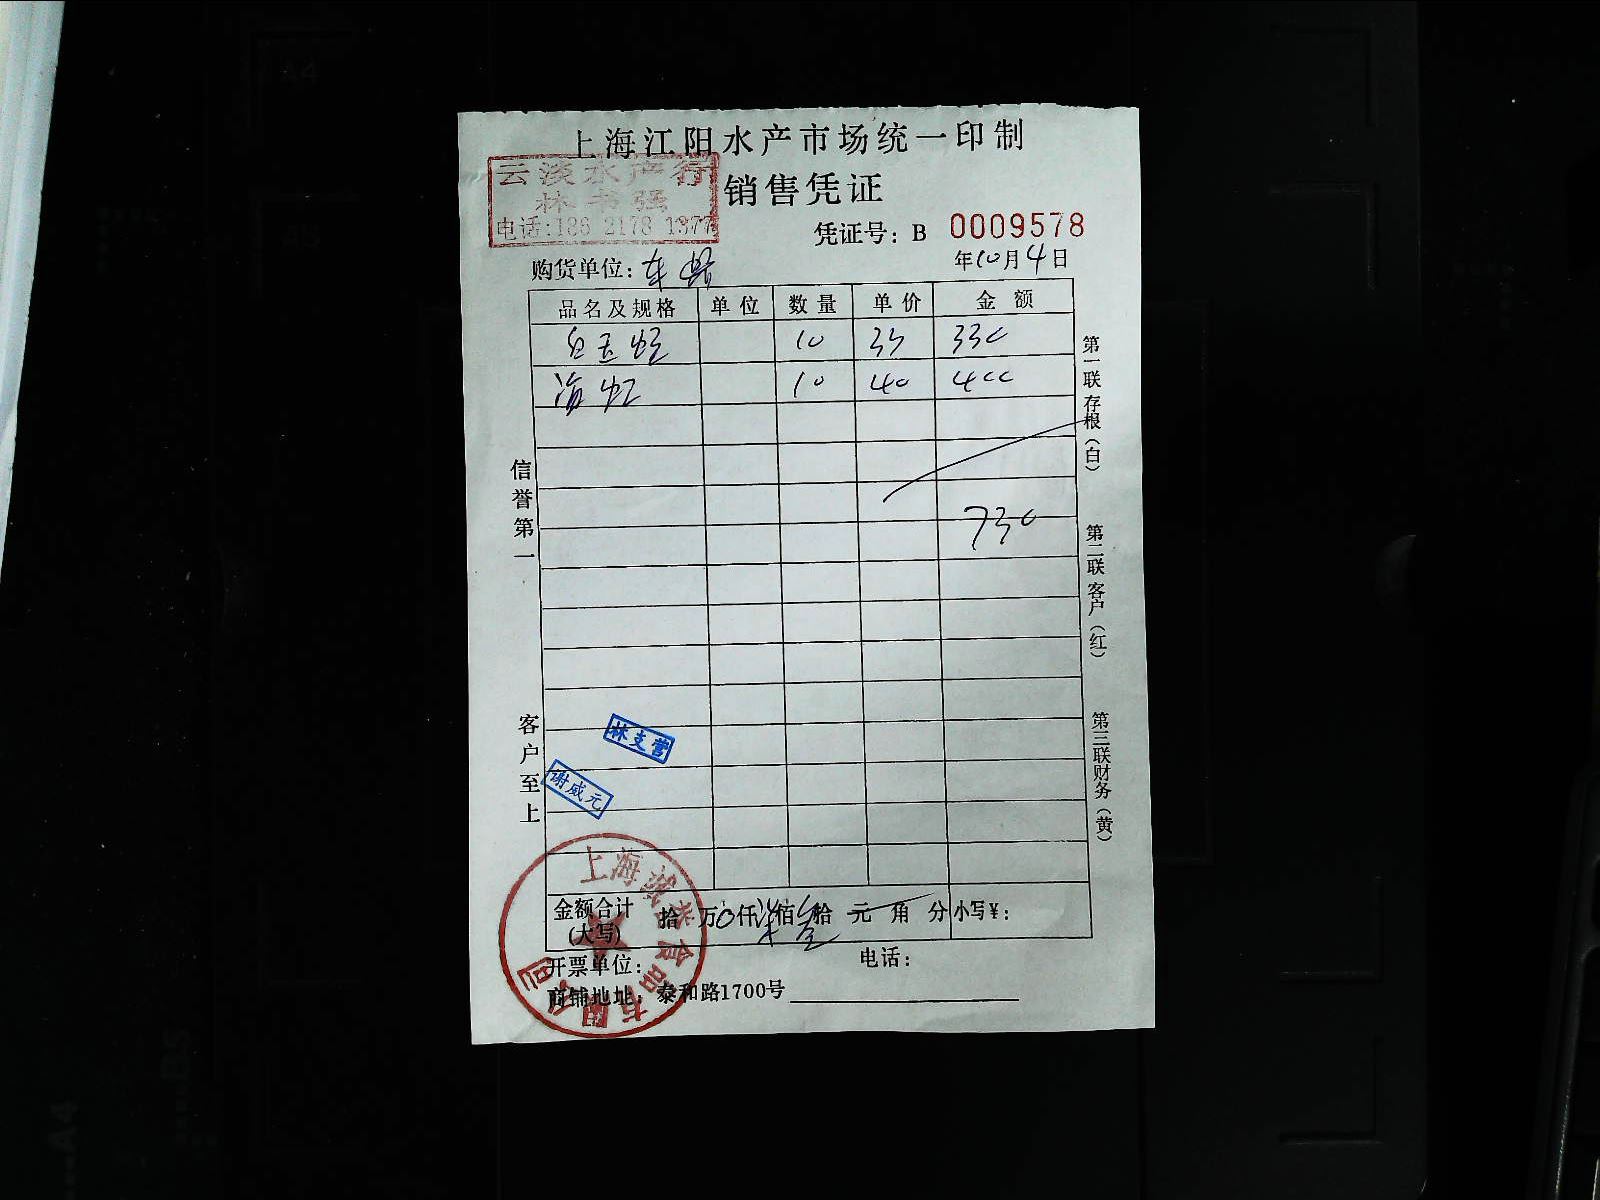 上海江阳水产市场统一印制
云淡水产行
林书强
电话:186 2178 1377
销售凭证
凭证号: B 0009578
购货单位:
年10月4日
品名及规格 单位 数量 单价 金额
10 33 330
海虹 10 40 400
730
信誉第一
客户至上
第一联存根(白)
第二联客户(红)
第三联财务(黄)
林支营
谢威元
金额合计(大写) 拾 万0仟柒佰叁拾 元 角 分 小写¥:
开票单位: 电话:
商铺地址: 泰和路1700号
上海 食品有限公司